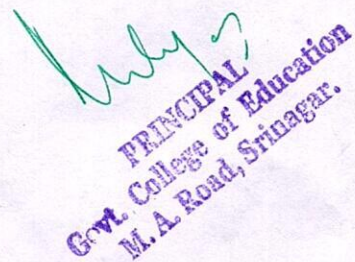 PRINCIPAL
Govt. College of Education
M. A. Road, Srinagar.